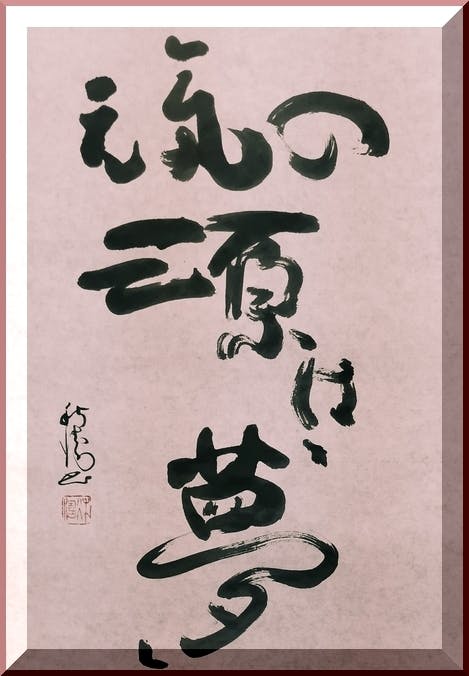 元氣の
源は
夢